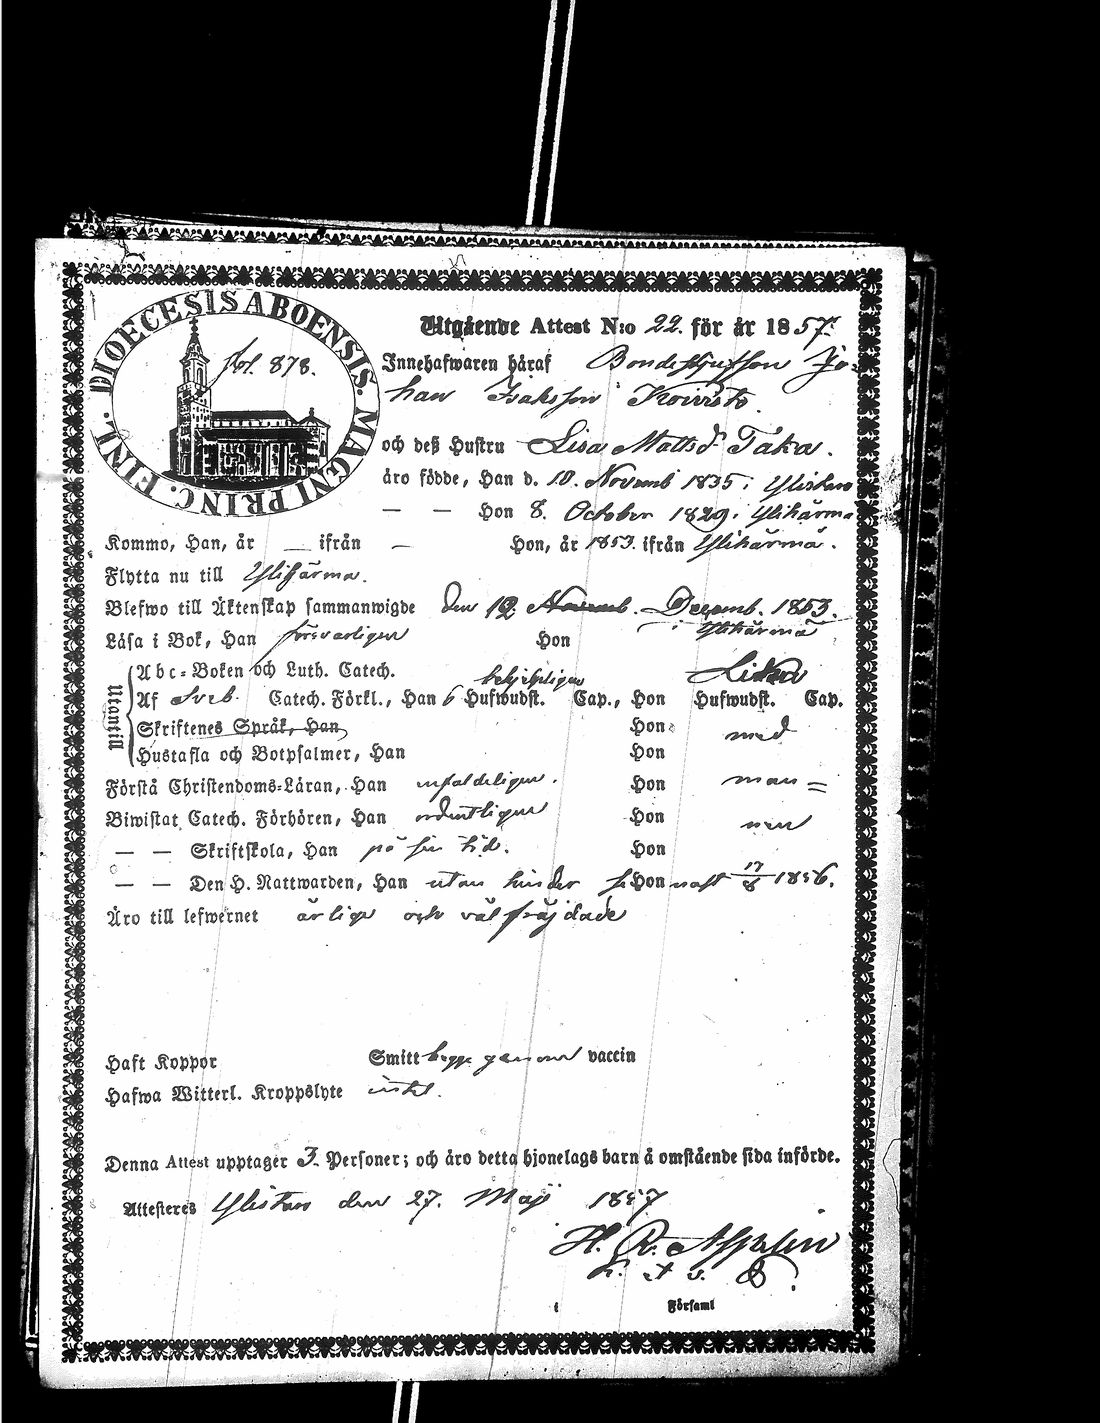 DIOECESIS ABOENSIS. MAGNI PRINC. FINL.
fol. 878.
Utgående Attest N:o 22. för år 1857.
Innehafwaren häraf Bondesyttson Jo-
han Isaksson Koivisto.
och deß Hustru Lisa Mattsd. Taka.
äro födde, Han d. 10. Novemb 1835 i Ylistaro
— — Hon 8. October 1829. i Ylihärmä
Kommo, Han, år — ifrån — Hon, år 1853. ifrån Ylihärmä.
Flytta nu till Ylihärma.
Blefwo till Äktenskap sammanwigde den 12 Novemb. Decemb. 1853.
i Ylihärmä
Läsa i Bok, Han försvarligen Hon
Utantill
Abc-Boken och Luth. Catech. behjelpligen Lika
Af Sveb. Catech. Förkl., Han 6 Hufwudst. Cap., Hon Hufwudst. Cap.
Skriftenes Språk, Han Hon med
Hustafla och Botpsalmer, Han Hon
Förstå Christendoms-Läran, Han enfaldeligen. Hon man=
Biwistat Catech. Förhören, Han ordentligen Hon nen
— — Skriftskola, Han på sin tid. Hon
— — Den H. Nattwarden, Han utan hinder Hon 17/8 1856.
Äro till lefwernet ärliga och väl fräjdade
Haft Koppor Smitt begge genom vaccin
Hafwa Witterl. Kroppslyte intet.
Denna Attest upptager 3. Personer; och äro detta hjonelags barn å omstående sida införde.
Attesteres Ylistaro den 27. Maji 1857
H. R. Aspelin
Församl